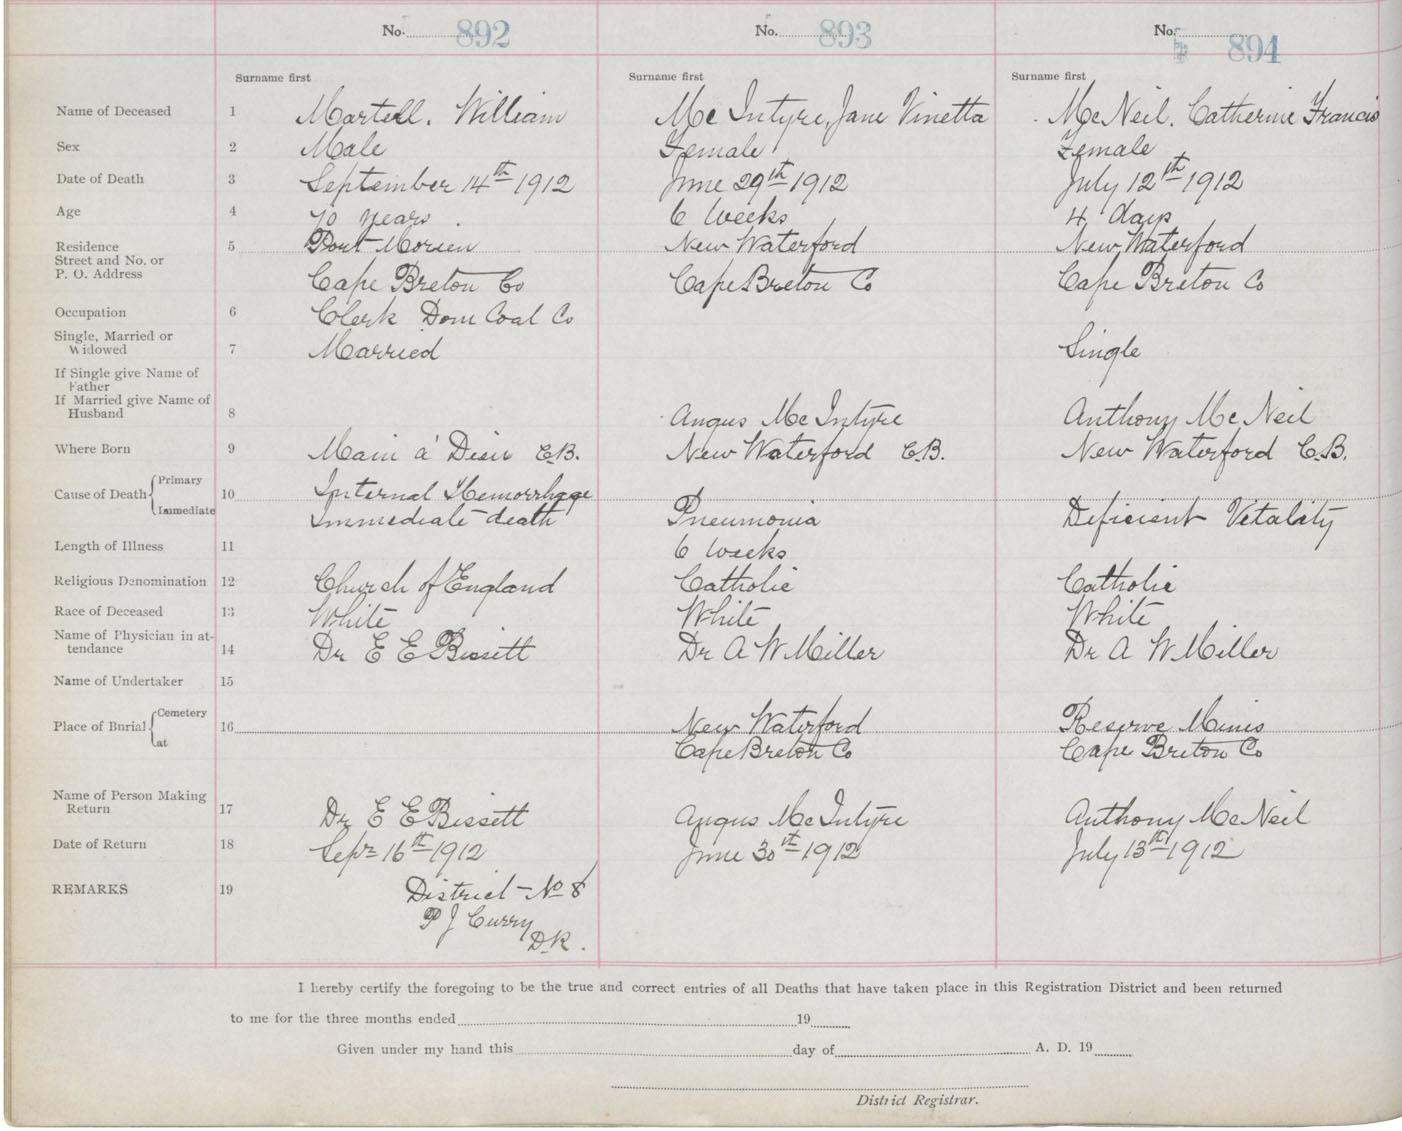 No. 892 No. 893 No. 894
Surname first Surname first Surname first
Name of Deceased 1 Martell, William Mc Intyre, Jane Vinetta McNeil, Catherine Francis
Sex 2 Male Female Female
Date of Death 3 September 14th 1912 June 29th 1912 July 12th 1912
Age 4 70 years 6 weeks 4 days
Residence 5 Port Morien New Waterford New Waterford
Street and No. or
P. O. Address Cape Breton Co Cape Breton Co Cape Breton Co
Occupation 6 Clerk Dom Coal Co
Single, Married or
Widowed 7 Married Single
If Single give Name of
Father
If Married give Name of
Husband 8 Angus McIntyre Anthony McNeil
Where Born 9 Main á Dieu C.B. New Waterford C.B. New Waterford C.B.
Cause of Death Primary 10 Internal Hemorrhage
Immediate Immediate death Pneumonia Deficient Vitality
Length of Illness 11 6 weeks
Religious Denomination 12 Church of England Catholic Catholic
Race of Deceased 13 White White White
Name of Physician in at-
tendance 14 Dr E E Bissett Dr A W Miller Dr A W Miller
Name of Undertaker 15
Place of Burial Cemetery 16 New Waterford Reserve Mines
at Cape Breton Co Cape Breton Co
Name of Person Making
Return 17 Dr E E Bissett Angus McIntyre Anthony McNeil
Date of Return 18 Sept 16th 1912 June 30th 1912 July 13th 1912
REMARKS 19 District No 8
P J Curry
D.R.
I hereby certify the foregoing to be the true and correct entries of all Deaths that have taken place in this Registration District and been returned
to me for the three months ended 19
Given under my hand this day of A. D. 19
District Registrar.